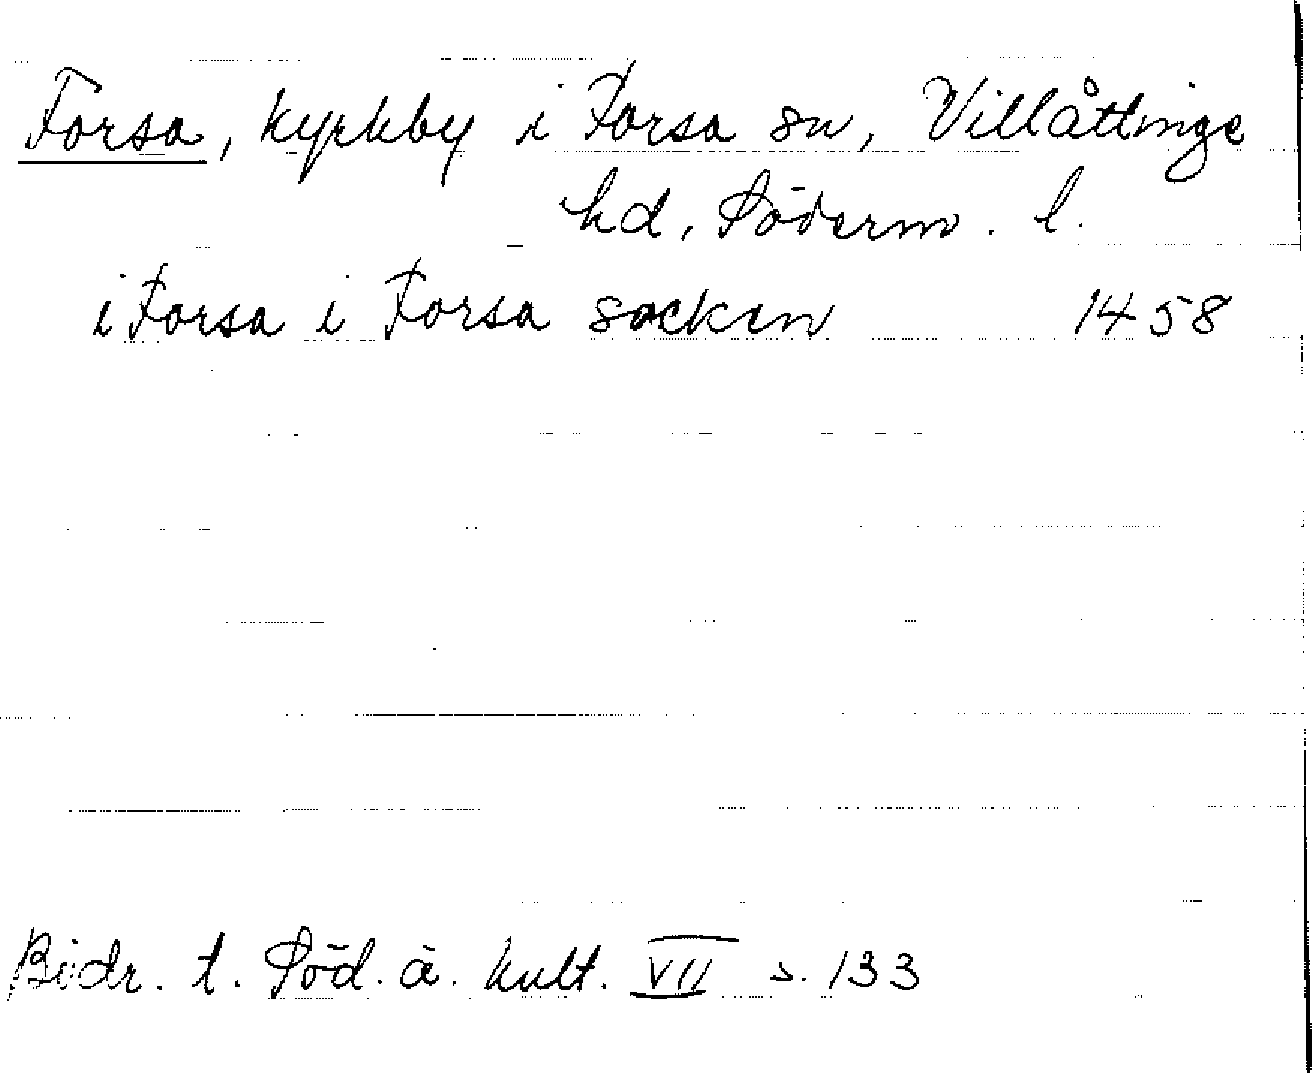 Forsa, kyrkby i Forsa sn, Villåttinge
hd, Söderm. l.
i Forsa i Forsa socken 1458
Bidr. t. Söd. ä. kult. VII s. 133